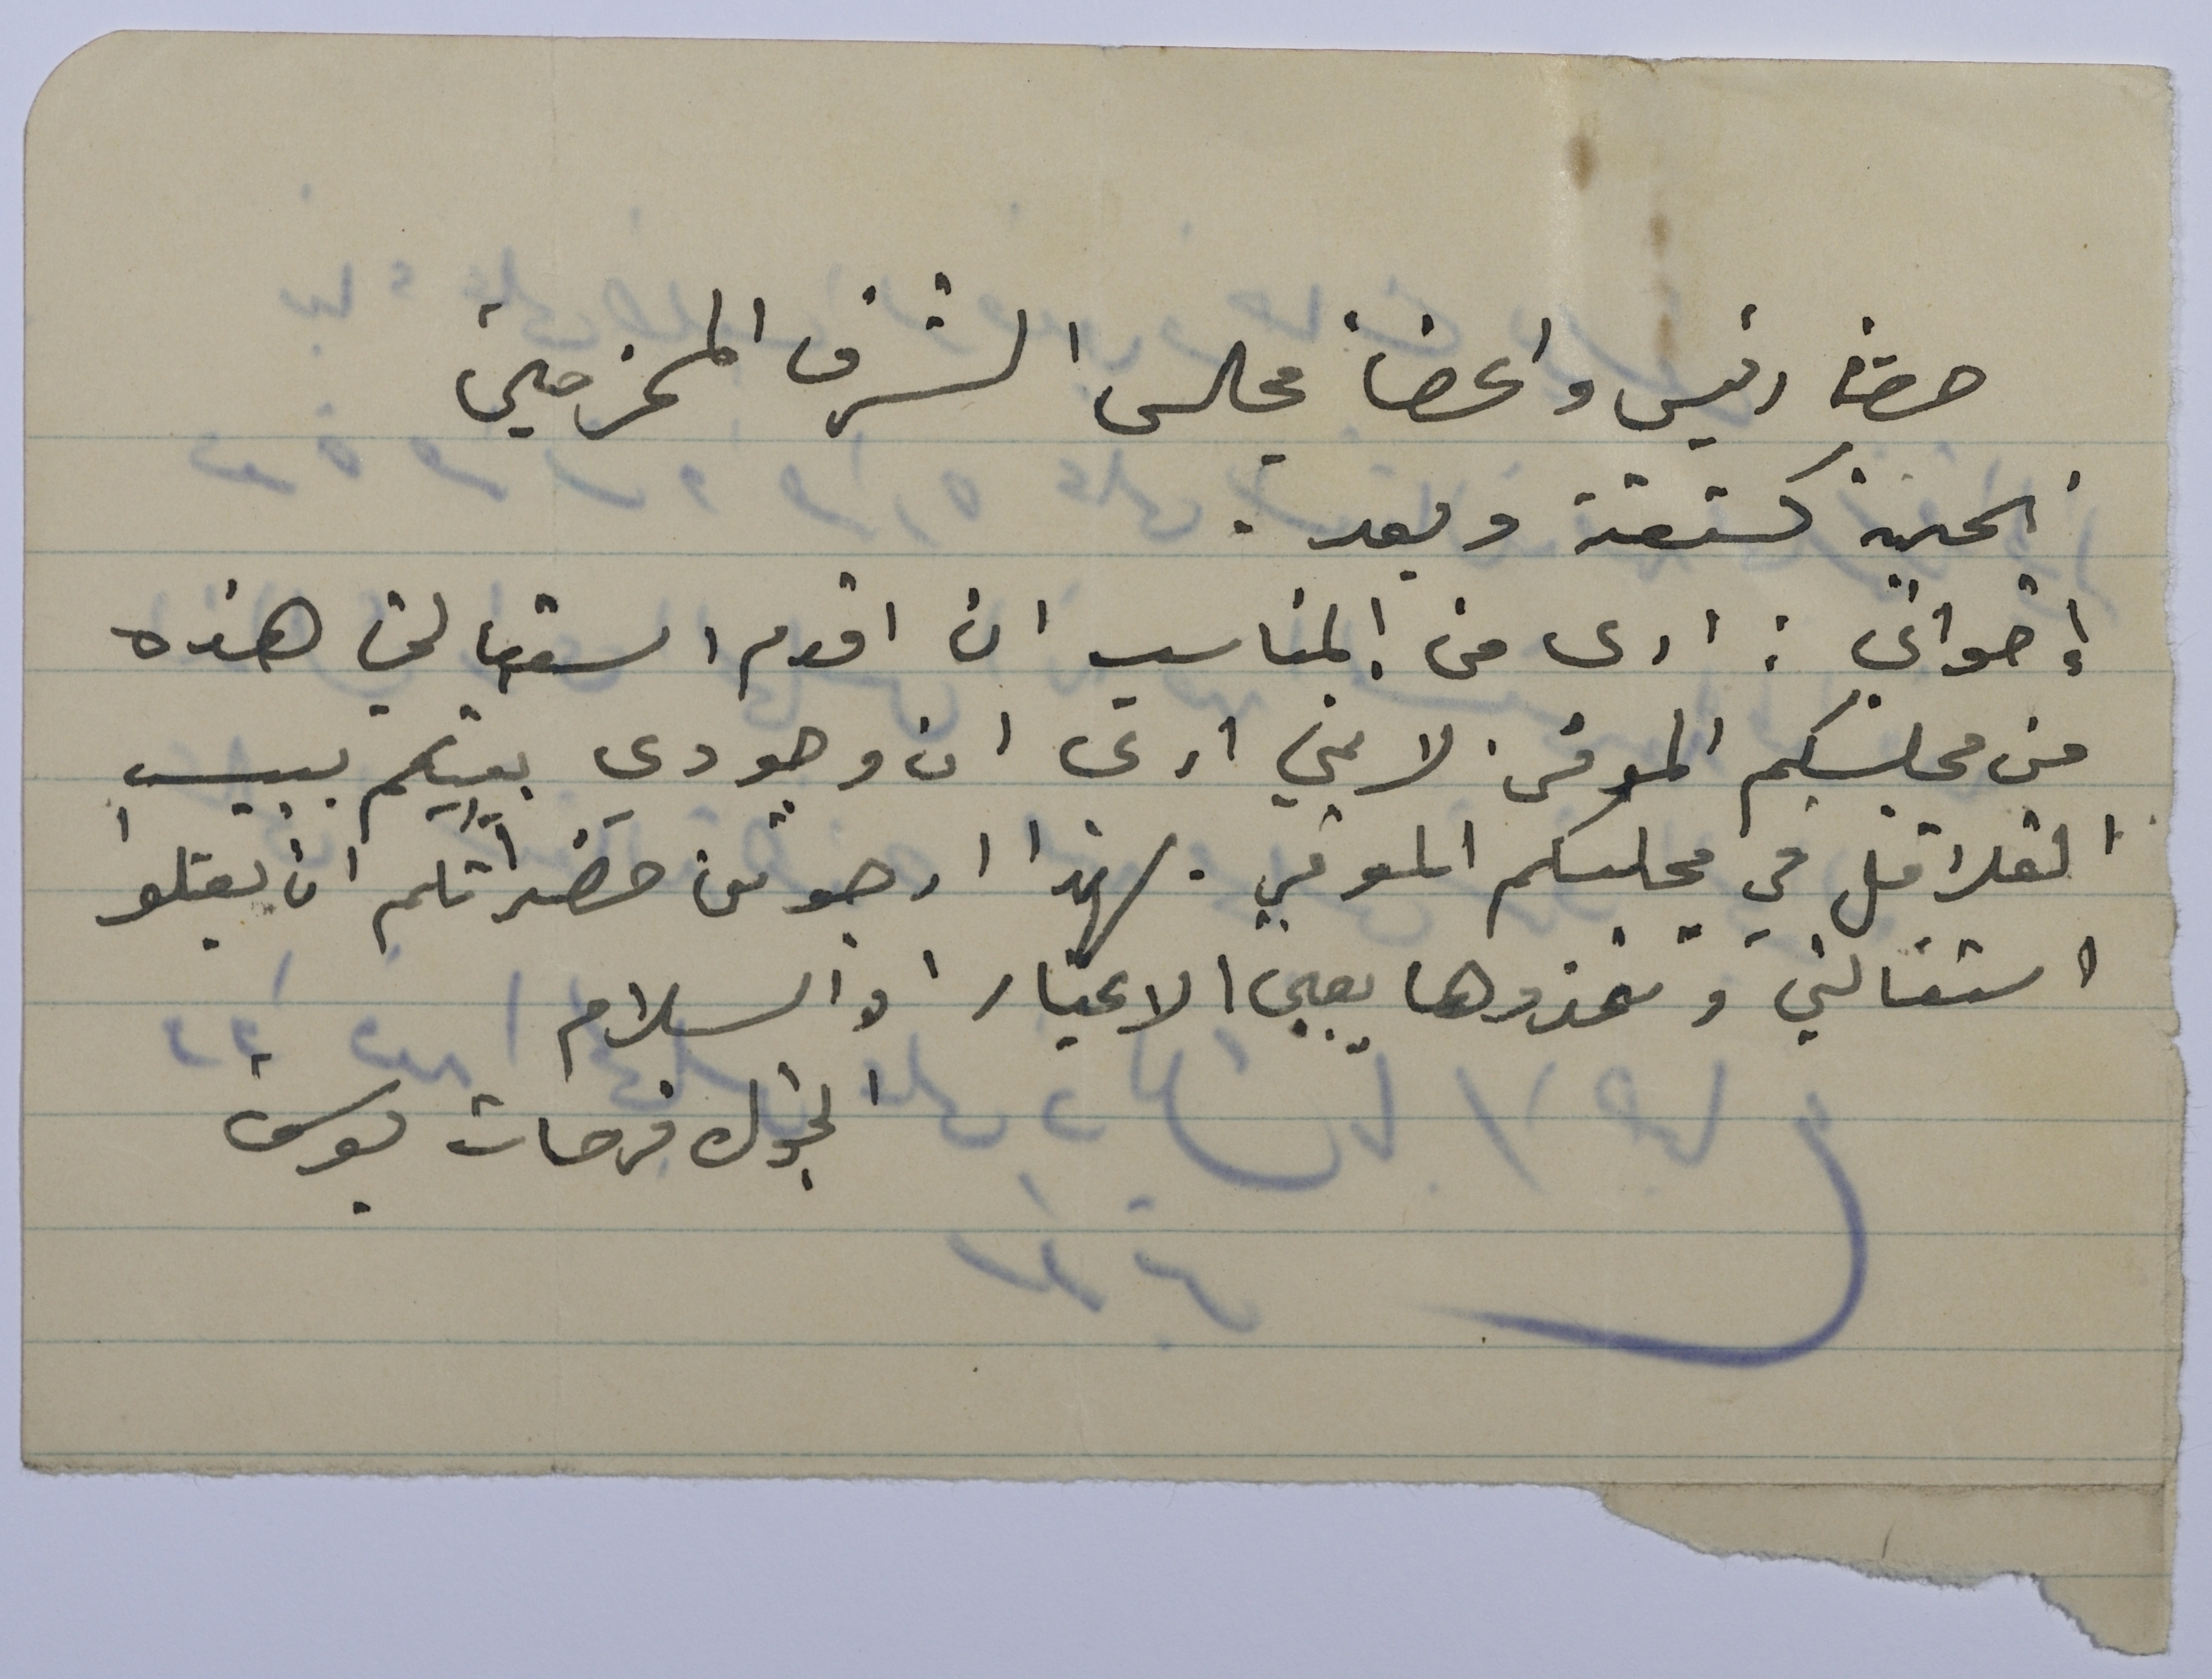 حضرة رئيس واعضاء مجلس الشرف المحترمين
تحية كشفية وبعد .
إخواني : ارى من المناسب ان اقدم استقالتي هذه
من مجلسكم الموقر. لانني ارى ان وجودي بينكم يسبب
القلاقل في مجلسكم الموقر . لهذا ارجو من حضراتكم ان تقبلوا
استقالتي وتخذوها بعين الاعتبار والسلام
فرحات يوسف